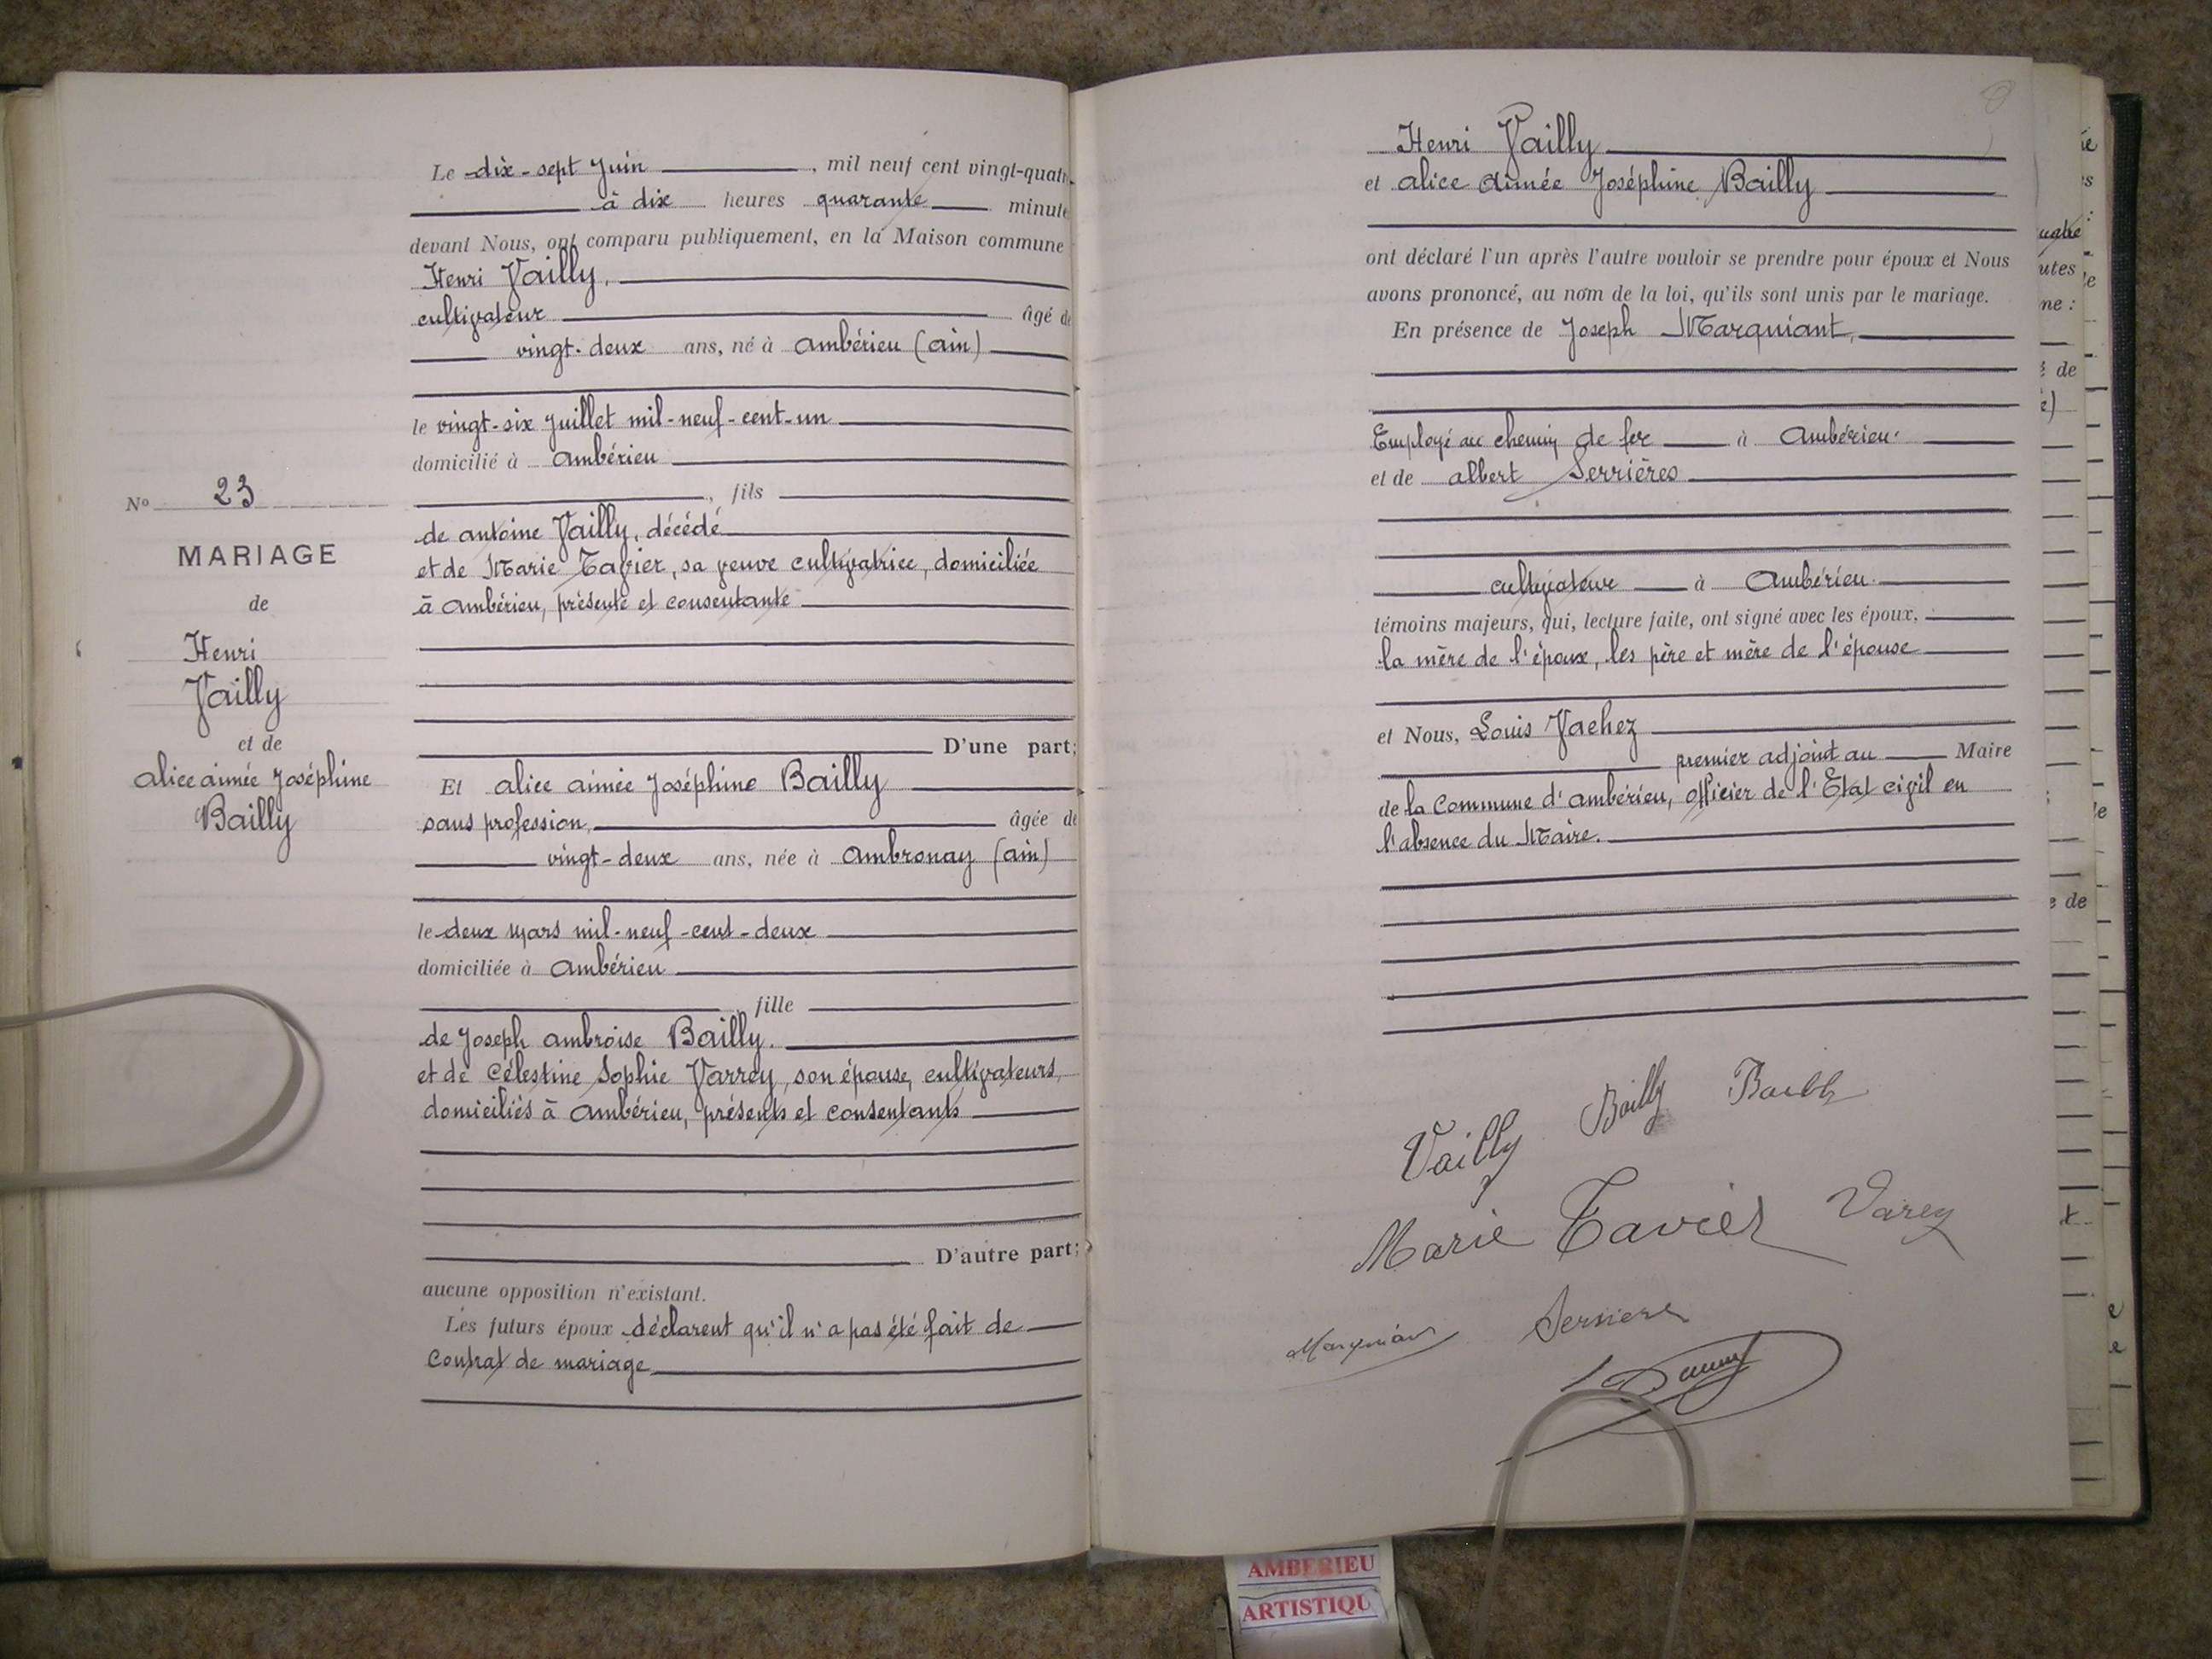 Le dix-sept Juin, mil neuf cent vingt-quatr
à dix heures quarante minute
devant Nous, ont comparu publiquement, en la Maison commune
Henri Vailly,
cultivateur âgé d
vingt-deux ans, né à Ambérieu (Ain)
le vingt-six Juillet mil-neuf-cent-un
domicilié à Ambérieu
, fils
de Antoine Vailly, décédé
et de Marie Tavier, sa veuve cultivatrice, domiciliée
à Ambérieu, présente et consentante
D'une part;
No 23
MARIAGE
de
Henri
Vailly
et de
Alice Aimée Joséphine
Bailly
Et Alice Aimée Joséphine Bailly
sans profession, âgée de
vingt-deux ans, née à Ambronay (Ain)
le deux Mars mil-neuf-cent-deux
domiciliée à Ambérieu
, fille
de Joseph Ambroise Bailly.
et de Célestine Sophie Varrey, son épouse, cultivateurs,
domiciliés à Ambérieu, présents et consentants
D'autre part;
aucune opposition n'existant.
Les futurs époux déclarent qu'il n'a pas été fait de
Contrat de mariage
Henri Vailly
et Alice Aimée Joséphine Bailly
ont déclaré l'un après l'autre vouloir se prendre pour époux et Nous
avons prononcé, au nom de la loi, qu'ils sont unis par le mariage.
En présence de Joseph Marguiant,
Employé au chemin de fer à Ambérieu.
et de Albert Serrières
cultivateur à Ambérieu.
témoins majeurs, qui, lecture faite, ont signé avec les époux,
la mère de l'époux, les père et mère de l'épouse
et Nous, Louis Vachez
premier adjoint au Maire
de la Commune d'Ambérieu, officier de l'Etat civil en
l'absence du Maire.
Vailly Bailly Bailly
Marie Tavier Varey
Serriere
AMBERIEU
ARTISTIQU